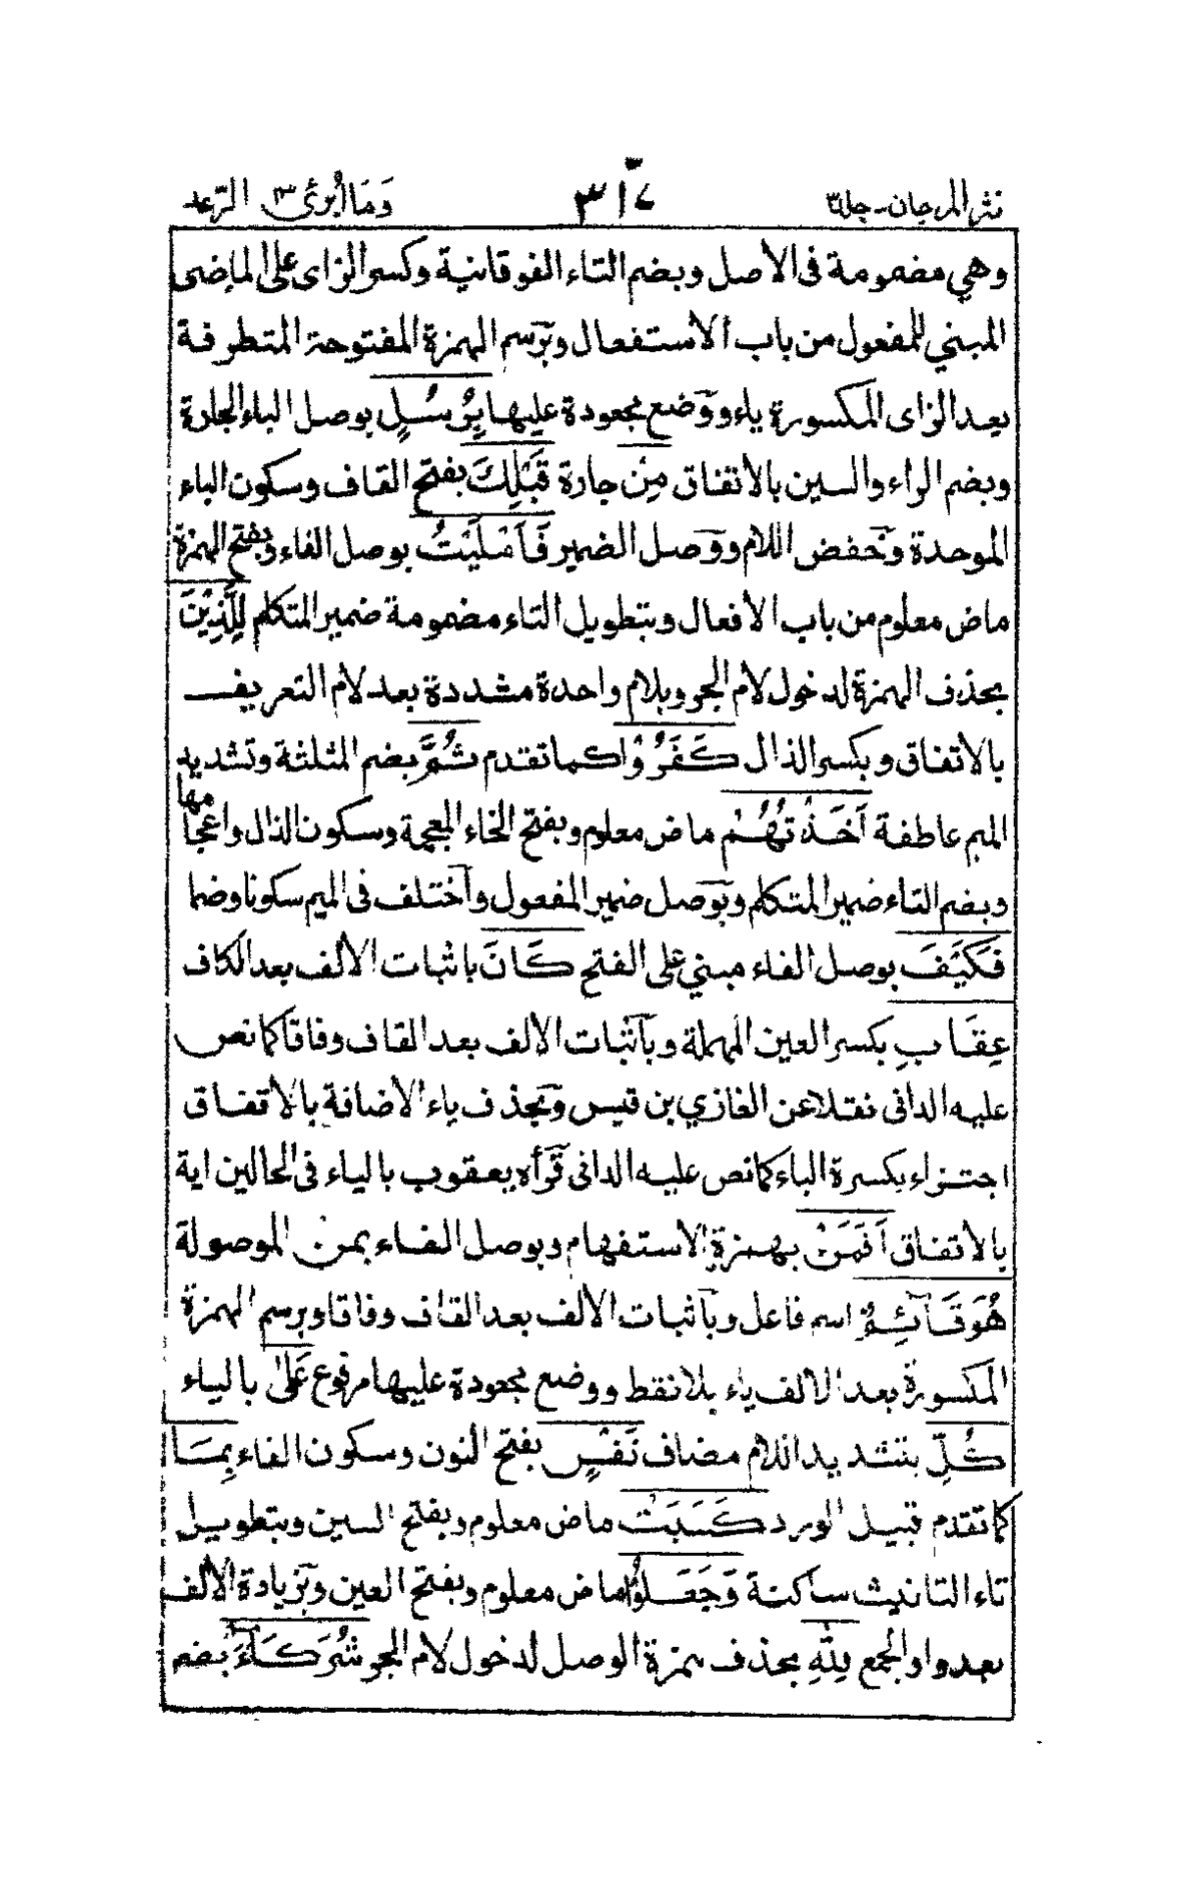 نثر المرجان - جلد٣ ٣١٧ وَمَا اُبَرِّئُ ١٣ الرّعد
وهي مضمومة فى الاصل وبضم التاء الفوقانية وكسر الزاى على الماضى
المبني للمفعول من باب الاستفعال وبرسم الهمزة المفتوحة المتطرفة
بعد الزاى المكسورة ياء ووضع مجعودة عليها بِرُسُلٍ بوصل الباء الجارة
وبضم الراء والسين بالاتفاق مِنْ جارة قَبْلِكَ بفتح القاف وسكون الباء
الموحدة وخفض اللام ووصل الضمير فَاَمْلَيْتُ بوصل الفاء وبفتح الهمزة
ماض معلوم من باب الافعال وبتطويل التاء مضمومة ضمير المتكلم لِلَّذِيْنَ
بحذف الهمزة لدخول لام الجر وبلام واحدة مشددة بعد لام التعريف
بالاتفاق وبكسر الذال كَفَرُوْا كما تقدم ثُمَّ بضم المثلثة وتشديد
الميم عاطفة اَخَذْتُهُمْ ماض معلوم وبفتح الخاء المعجمة وسكون الذال واعجامها
وبضم التاء ضمير المتكلم وبوصل ضمير المفعول واختلف فى الميم سكونا وضما
فَكَيْفَ بوصل الفاء مبني على الفتح كَانَ باثبات الالف بعد الكاف
عِقَابِ بكسر العين المهملة وباثبات الالف بعد القاف وفاقا كما نص
عليه الدانى نقلا عن الغازي بن قيس وبحذف ياء الاضافة بالاتفاق
اجتزاء بكسرة الباء كما نص عليه الدانى قرأه يعقوب بالياء فى الحالين اية
بالاتفاق اَفَمَنْ بهمزة الاستفهام وبوصل الفاء بمن الموصولة
هُوَ قَآئِمٌ اسم فاعل وباثبات الالف بعد القاف وفاقا وبرسم الهمزة
المكسورة بعد الالف ياء بلا نقط ووضع مجعودة عليها مرفوع عَلٰى بالياء
كُلِّ بتشديد اللام مضاف نَفْسٍ بفتح النون وسكون الفاء بِمَا
كما تقدم قبيل الورد كَسَبَتْ ماض معلوم وبفتح السين وبتطويل
تاء التانيث ساكنة وَجَعَلُوْا ماض معلوم وبفتح العين وبزيادة الالف
بعد واو الجمع لِلّٰهِ بحذف همزة الوصل لدخول لام الجر شُرَكَآءَ بضم